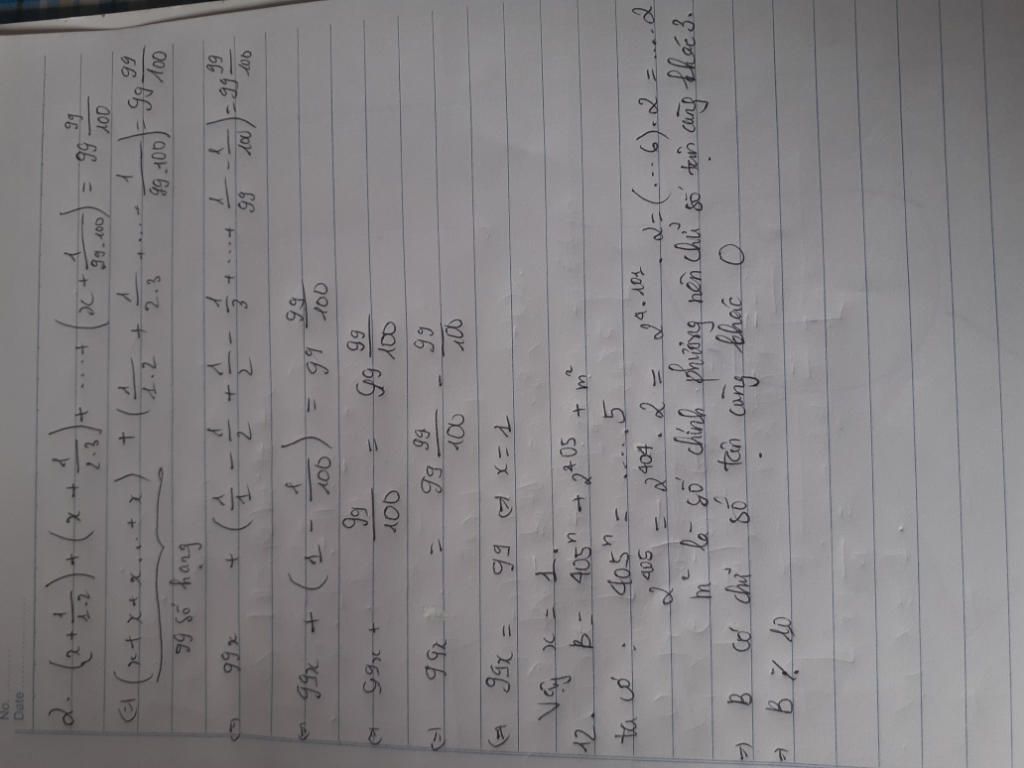 No.
Date
2. (x + 1/1.2) + (x + 1/2.3) + .... + (x + 1/99.100) = 99 99/100
(=) (x + x + x... + x) + (1/1.2 + 1/2.3 + .... 1/99.100) = 99 99/100
99 số hạng
(=) 99x + (1/1 - 1/2 + 1/2 - 1/3 + .... 1/99 - 1/100) = 99 99/100
(=) 99x + (1 - 1/100) = 99 99/100
(=) 99x + 99/100 = 99 99/100
(=) 99x = 99 99/100 - 99/100
(=) 99x = 99 (=) x = 1
Vậy x = 1.
12. B = 405ⁿ + 2⁴⁰⁵ + m²
ta có : 405ⁿ = .....5
2⁴⁰⁵ = 2⁴⁰⁴ . 2 = 2⁴·¹⁰¹ . 2 = (...6).2 = .....2
m² là số chính phương nên chữ số tận cùng khác 3.
=) B có chữ số tận cùng khác 0
=) B ⋮̸ 10